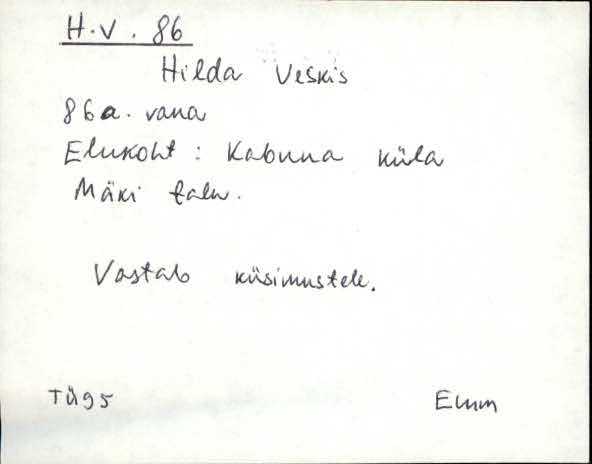 H.V. 86
Hilda Veskis
86a. vana
Elukoht : Kabuna küla
Mäki talu.
Vastab küsimustele.
TÜ95 Emm